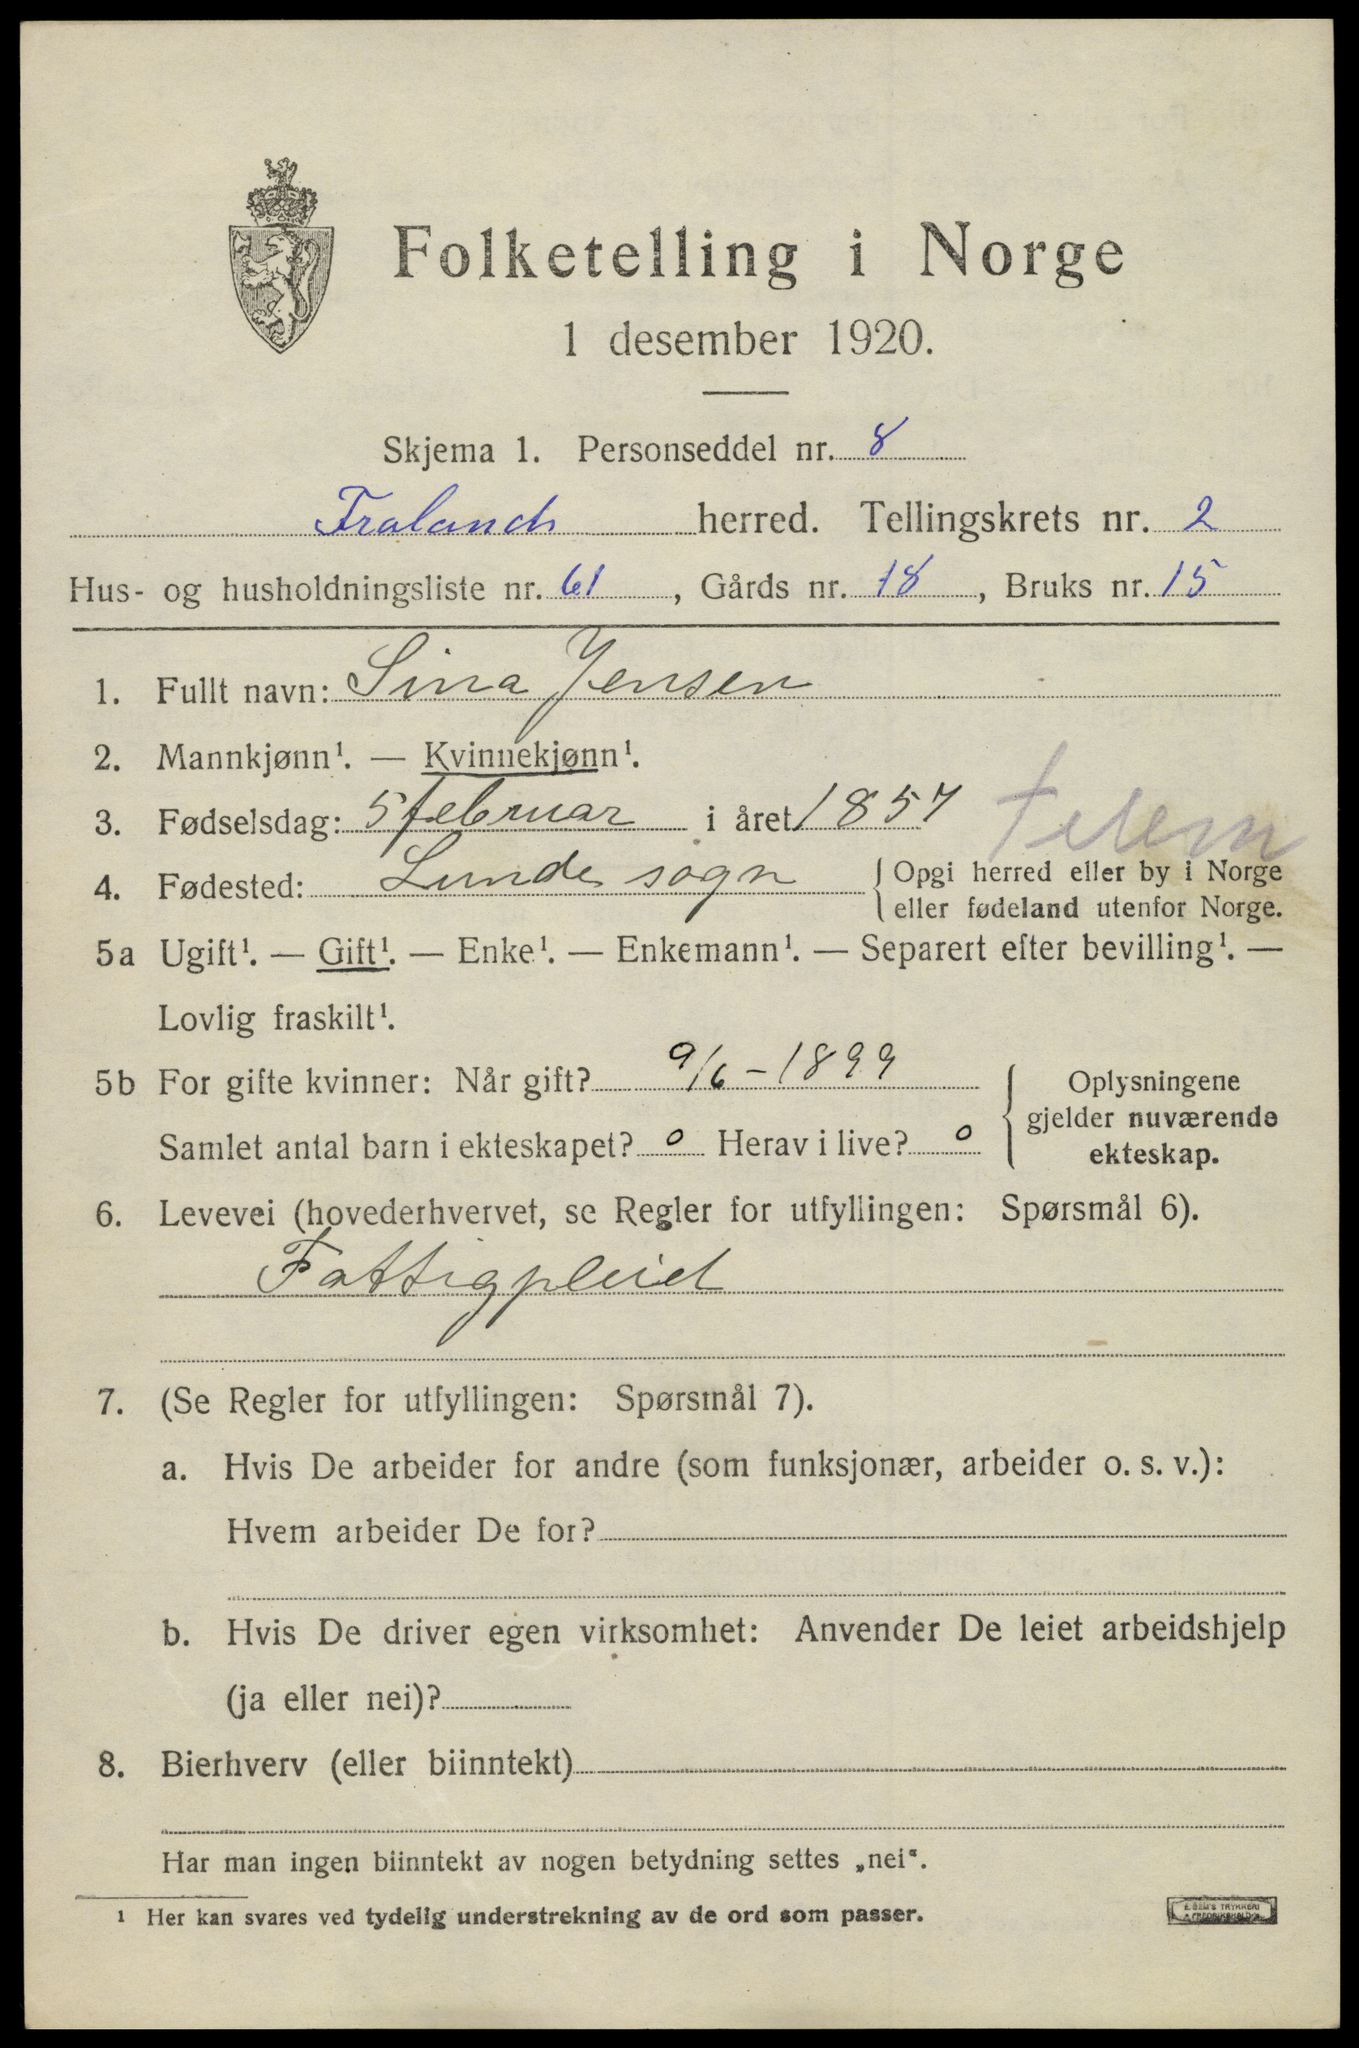 Folketelling i Norge
1 desember 1920.
Skjema 1. Personseddel nr. 8
Froland herred. Tellingskrets nr. 2
Hus- og husholdningsliste nr. 61, Gårds nr. 18, Bruks nr. 15
1. Fullt navn: Sina Jensen
2. Mannkjønn¹. — Kvinnekjønn¹.
3. Fødselsdag: 5 februar i året 1857
Telem
4. Fødested: Lunde sogn {Opgi herred eller by i Norge
eller fødeland utenfor Norge.
5a Ugift¹. — Gift¹. — Enke¹. — Enkemann¹. — Separert efter bevilling¹. —
Lovlig fraskilt¹.
5b For gifte kvinner: Når gift? 9/6 - 1899
Samlet antal barn i ekteskapet? 0 Herav i live? 0
{Oplysningene
gjelder nuværende
ekteskap.
6. Levevei (hovederhvervet, se Regler for utfyllingen: Spørsmål 6).
Fattigpleid
7. (Se Regler for utfyllingen: Spørsmål 7).
a. Hvis De arbeider for andre (som funksjonær, arbeider o. s. v.):
Hvem arbeider De for?
b. Hvis De driver egen virksomhet: Anvender De leiet arbeidshjelp
(ja eller nei)?
8. Bierhverv (eller biinntekt)
Har man ingen biinntekt av nogen betydning settes „nei“.
¹ Her kan svares ved tydelig understrekning av de ord som passer.
E. SEM'S TRYKKERI
FREDRIKSHALD